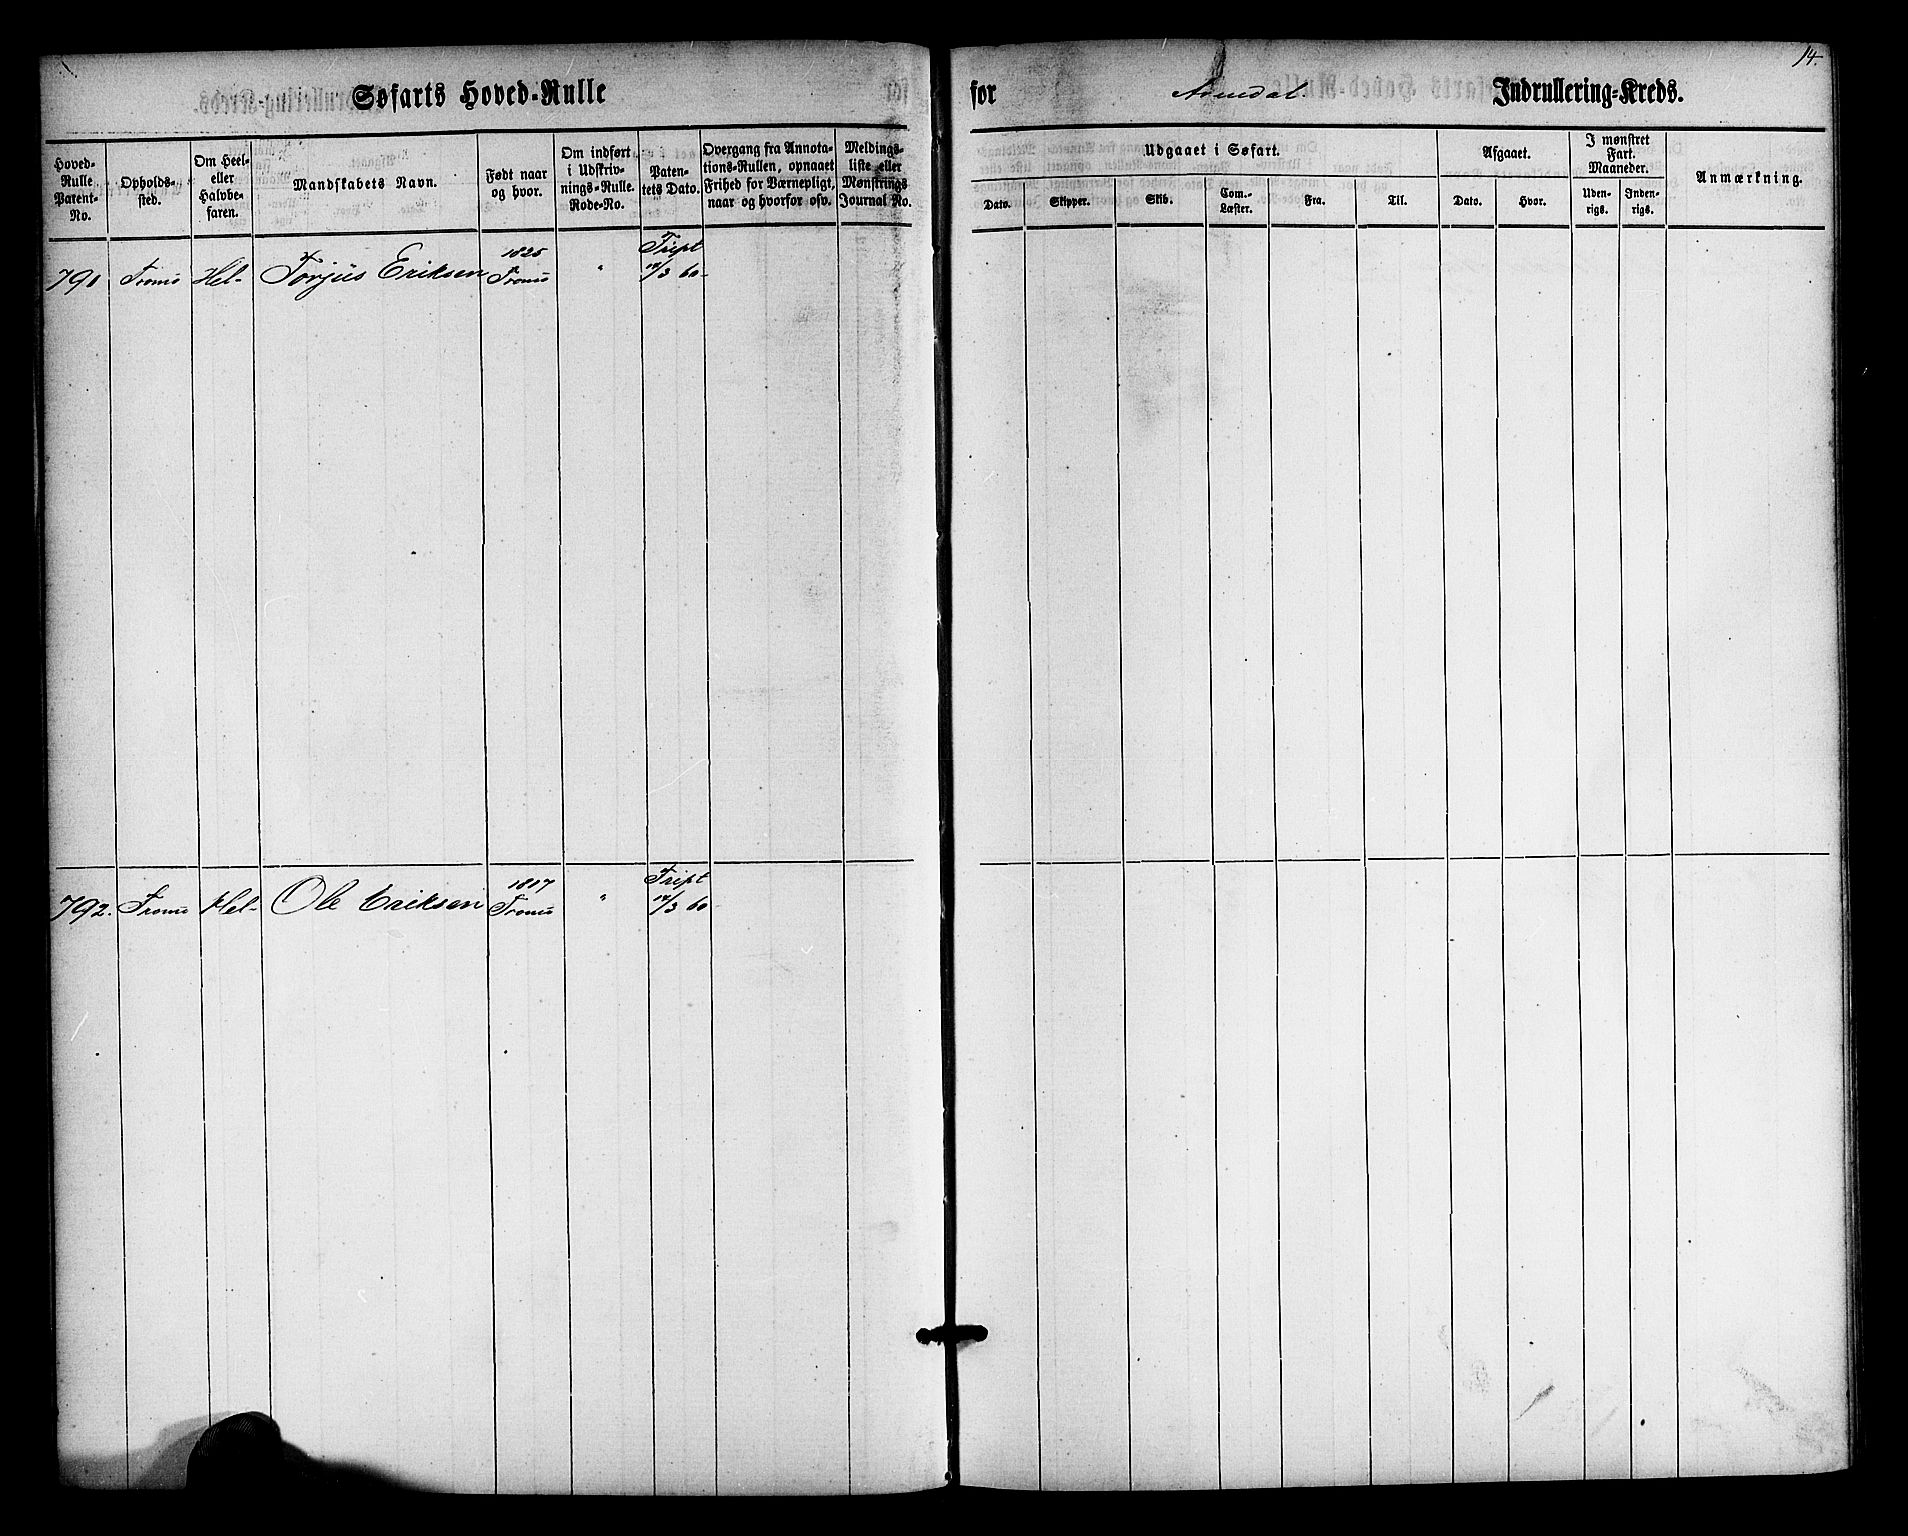 14.
Søfarts Hoved-Rulle for Arendal Indrullering-Kreds.
Hoved-
Rulle
Patent-
No.
Opholds-
sted.
Om Heel-
eller
Halvbe-
faren.
Mandskabets Navn.
Født naar
og hvor.
Om indført
i Udskriv-
nings-Rulle.
Rode-No.
Paten-
tets Dato.
Overgang fra Annota-
tions-Rullen, opnaaet
Frihed for Værnepligt,
naar og hvorfor osv.
Meldings-
liste eller
Mønstrings
Journal No.
Udgaaet i Søfart.
Dato.
Skipper.
Skib.
Com.-
Læster.
Fra.
Til.
Afgaaet.
Dato.
Hvor.
I mønstret
Fart.
Maaneder.
Uden-
rigs.
Inden-
rigs.
Anmærkning.
1825
791 Tromø Hel- Torjus Eriksen Tromø " 14/3 60-
1817
792. Tromø Hel- Ole Eriksen Tromø " 14/3 60-